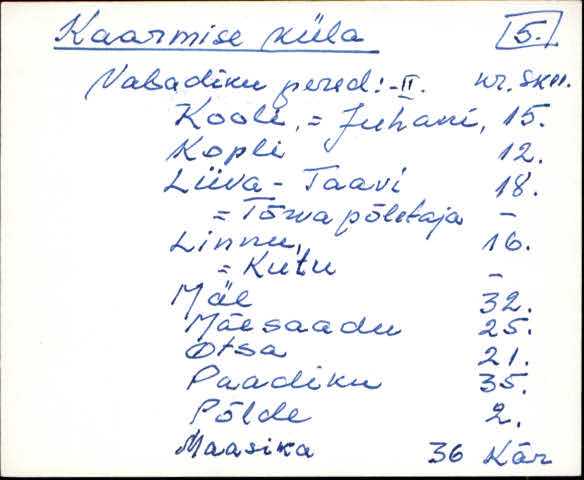 Kaarmise küla 5.
Vabadiku pered: -II. nr. skeem.
Kooli, = Juhani, 15.
Kopli 12.
Liiva - Taavi 18.
= Tõrva põletaja -
Linnu, 16.
= Kutu -
Mäe 32.
Mäesaadu 25.
Otsa 21.
Paadiku 35.
Põlde 2.
Maasika 36 Kär